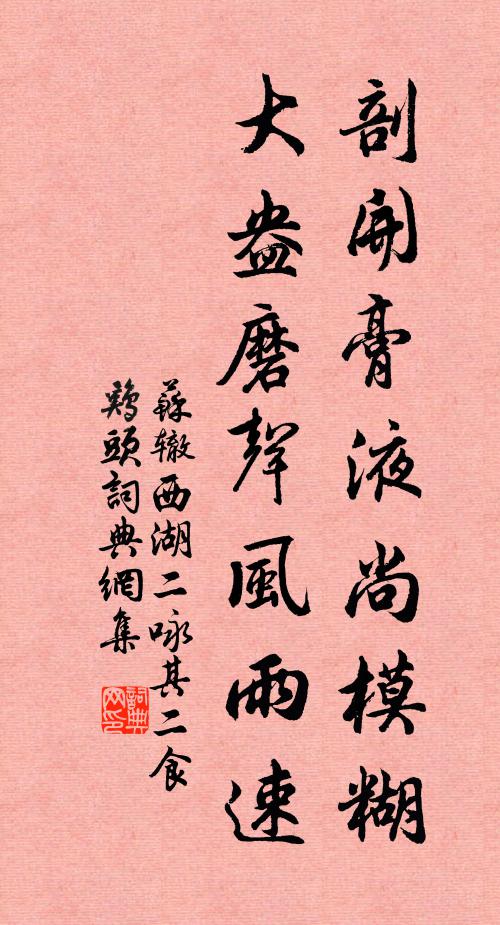 剖開膏液尚模糊
大盎磨聲風雨速
蘇辙西湖二咏其二食
鷄頭詞典網集
詞典网印